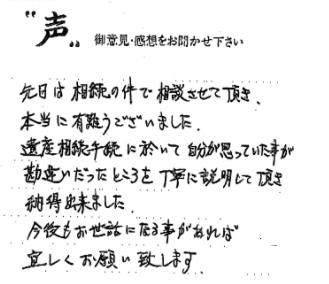 "声" 御意見・感想をお聞かせ下さい
先日は相続の件で相談させて頂き、
本当に有難うございました。
遺産相続手続に於いて自分が思っていた事が
勘違いだったところを丁寧に説明して頂き
納得出来ました。
今後もお世話になる事があれば
宜しくお願い致します。